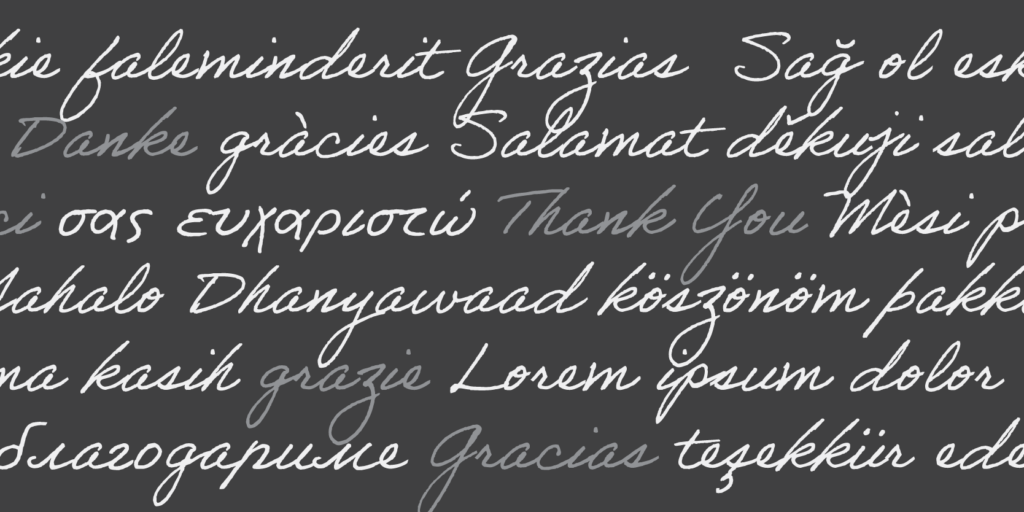 kie faleminderit Grazias Sağ ol esk
Danke gràcies Salamat děkuji sal
ci σας ευχαριστώ Thank You Mèsi p
ahalo Dhanyawaad köszönöm pakk
ma kasih grazie Lorem ipsum dolor
благодариме Gracias teşekkür ede